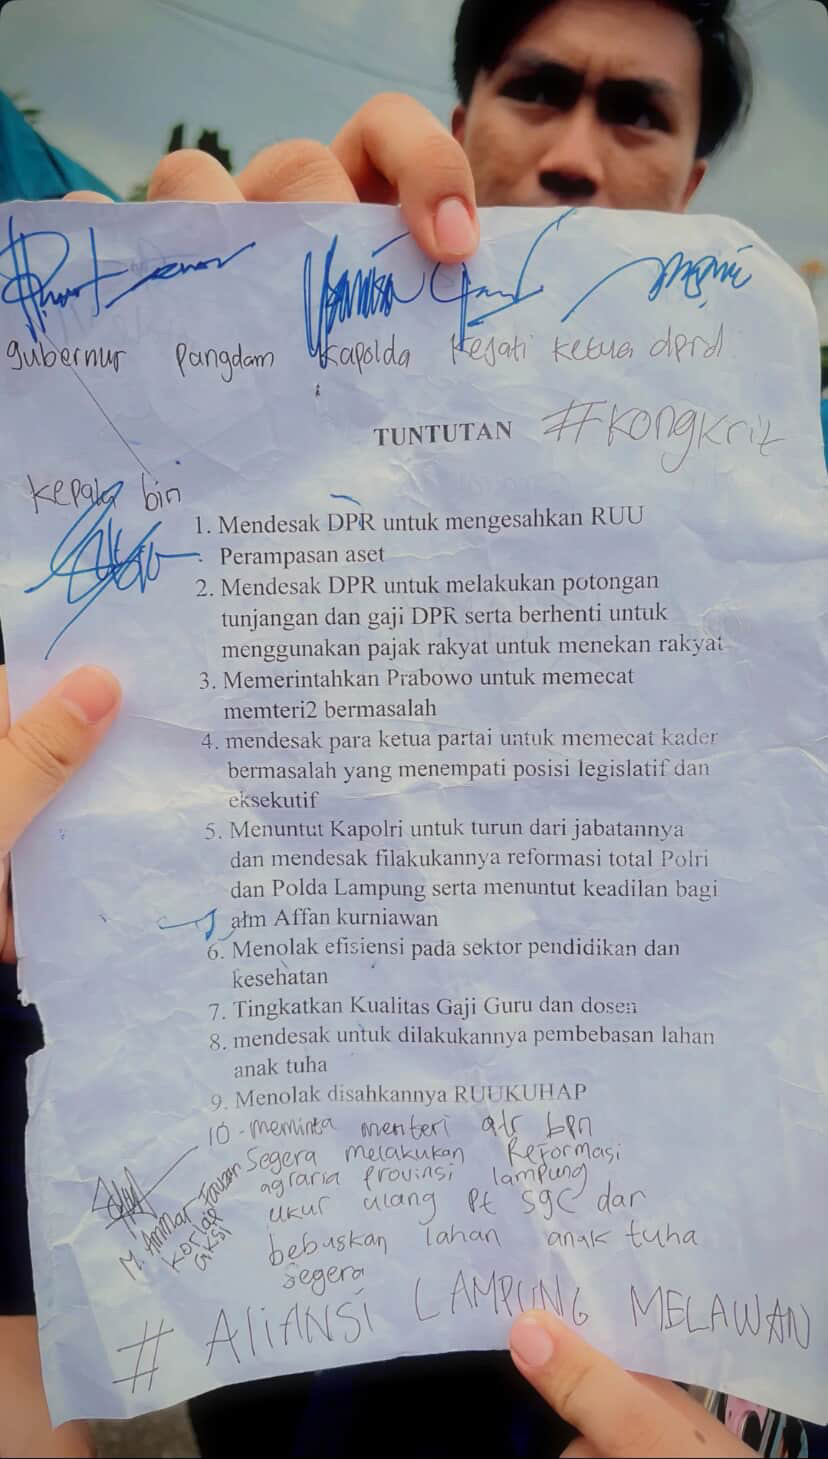 gubernur pangdam kapolda kejati ketua dprd
TUNTUTAN #kongkrit
kepala bin
1. Mendesak DPR untuk mengesahkan RUU
Perampasan aset
2. Mendesak DPR untuk melakukan potongan
tunjangan dan gaji DPR serta berhenti untuk
menggunakan pajak rakyat untuk menekan rakyat
3. Memerintahkan Prabowo untuk memecat
memteri2 bermasalah
4. mendesak para ketua partai untuk memecat kader
bermasalah yang menempati posisi legislatif dan
eksekutif
5. Menuntut Kapolri untuk turun dari jabatannya
dan mendesak filakukannya reformasi total Polri
dan Polda Lampung serta menuntut keadilan bagi
alm Affan kurniawan
6. Menolak efisiensi pada sektor pendidikan dan
kesehatan
7. Tingkatkan Kualitas Gaji Guru dan dosen
8. mendesak untuk dilakukannya pembebasan lahan
anak tuha
9. Menolak disahkannya RUUKUHAP
10 - meminta menteri atr bpn
Segera melakukan Reformasi
agraria Provinsi lampung
ukur ulang Pt sgc dan
bebuskan lahan anak tuha
segera
M. Ammar Fauzan
Korlap
aksi
# ALIANSI LAMPUNG MELAWAN